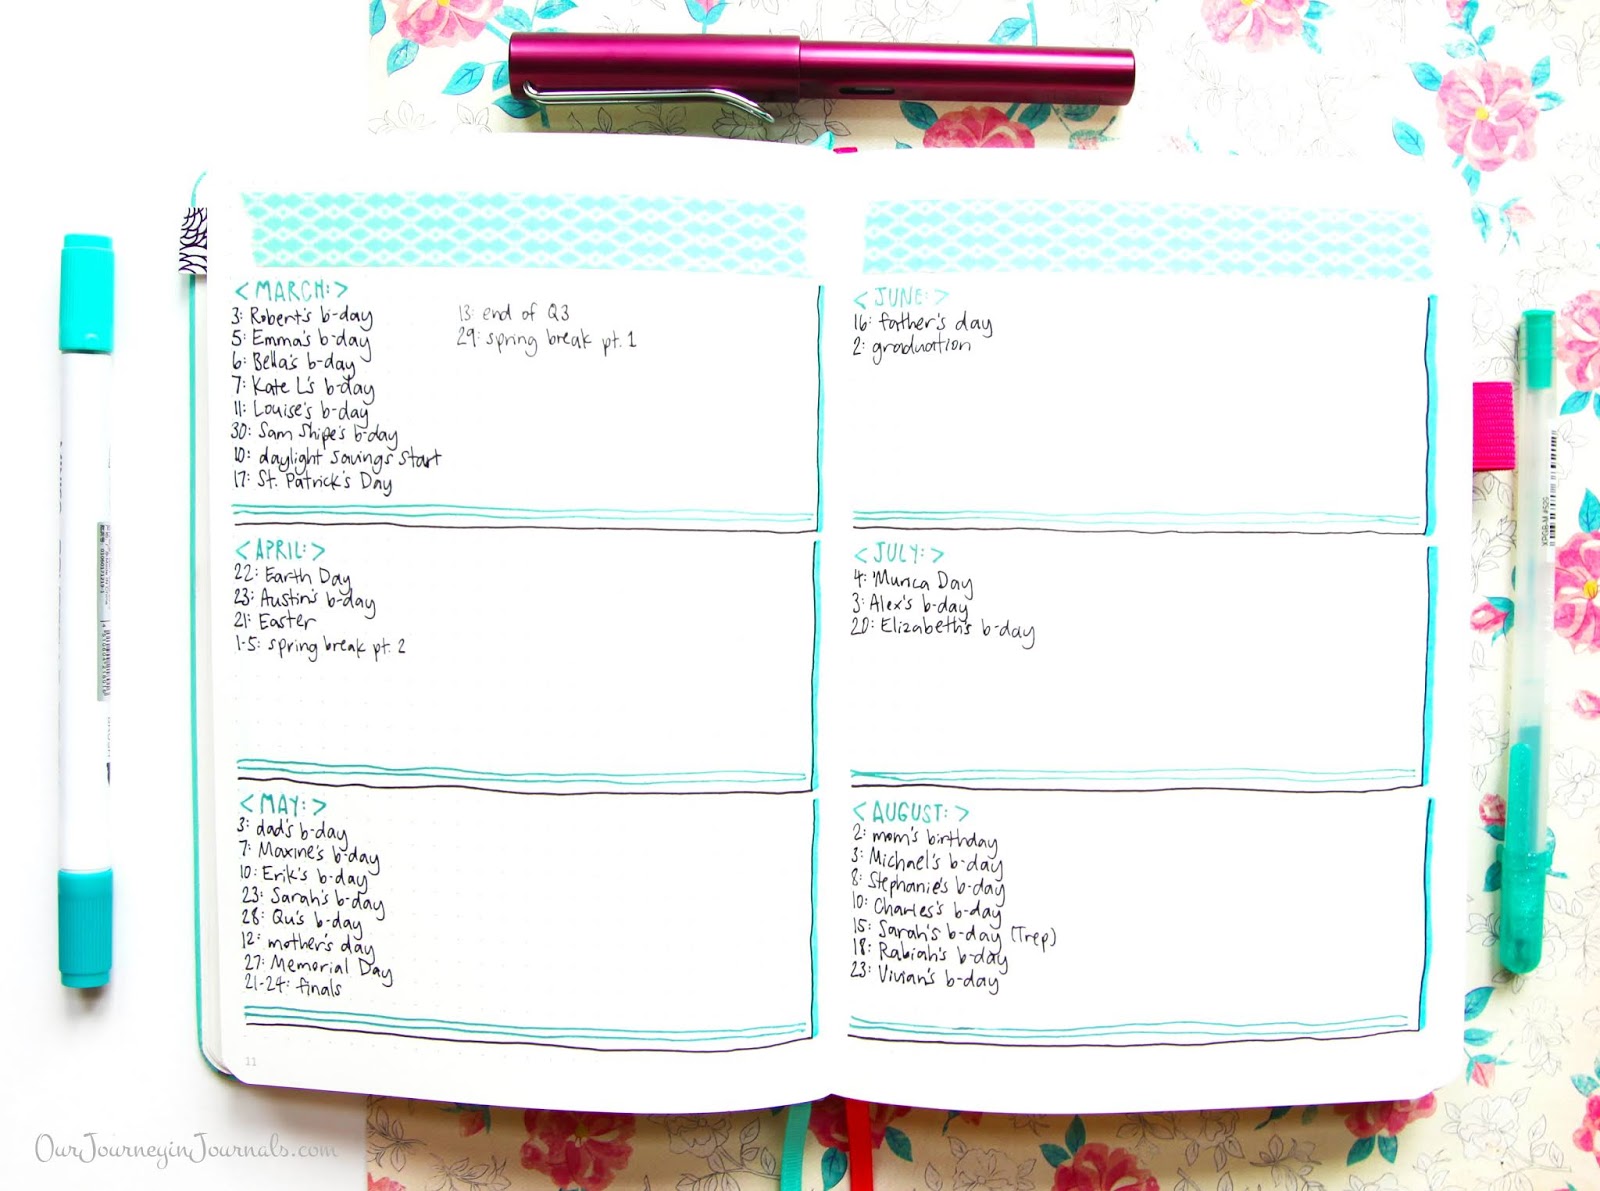 <MARCH:>
3: Robert's b-day
5: Emma's b-day
6: Bella's b-day
7: Kate L's b-day
11: Louise's b-day
30: Sam Shipe's b-day
10: daylight savings start
17: St. Patrick's Day
13: end of Q3
29: spring break pt. 1
<APRIL:>
22: Earth Day
23: Austin's b-day
21: Easter
1-5: spring break pt. 2
<MAY:>
3: dad's b-day
7: Maxine's b-day
10: Erik's b-day
23: Sarah's b-day
28: Qu's b-day
12: mother's day
27: Memorial Day
21-24: finals
11
<JUNE:>
16: father's day
2: graduation
<JULY:>
4: 'Murica Day
3: Alex's b-day
20: Elizabeth's b-day
<AUGUST:>
2: mom's birthday
3: Michael's b-day
8: Stephanie's b-day
10: Charles's b-day
15: Sarah's b-day (Trep)
18: Rabiah's b-day
23: Vivian's b-day
OurJourneyinJournals.com